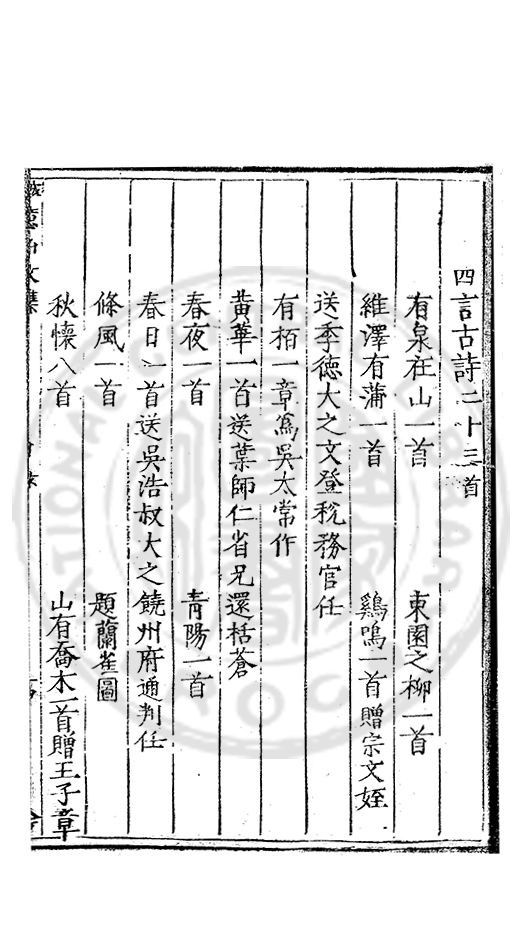 四言古詩二十三首
有泉在山一首 東園之柳一首
維澤有蒲一首 鷄鳴一首贈宗文姪
送季德大之文登稅務官任
有栢一章爲吳太常作
黃華一首送葉師仁省兄還栝蒼
春夜一首 青陽一首
春日一首送吳浩叔大之饒州府通判任
條風一首 題蘭雀圖
秋懷八首 山有喬木一首贈王子章